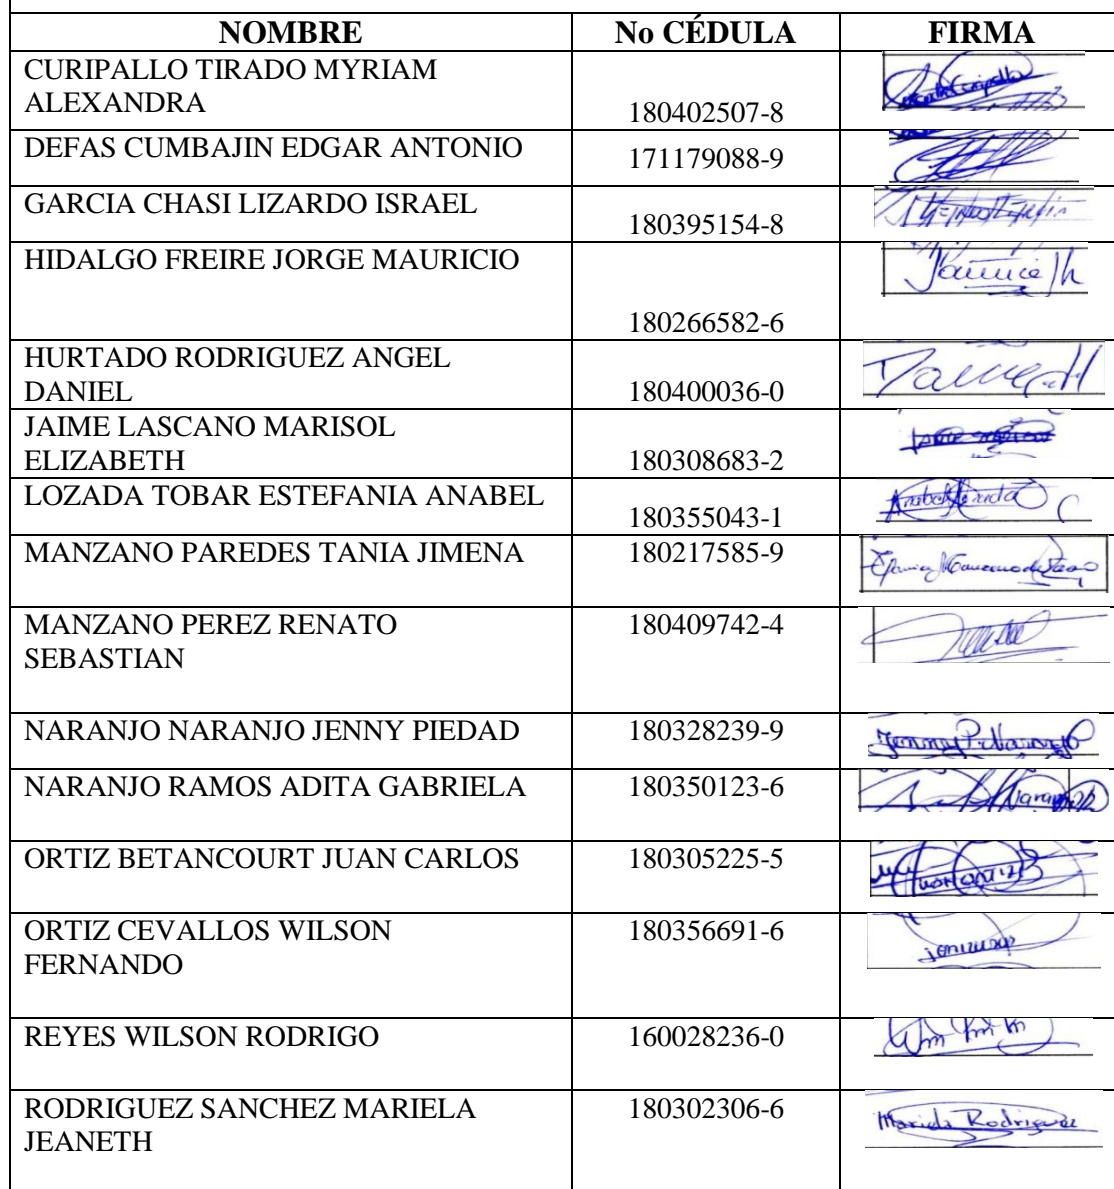 NOMBRE No CÉDULA FIRMA
CURIPALLO TIRADO MYRIAM
ALEXANDRA
180402507-8
DEFAS CUMBAJIN EDGAR ANTONIO 171179088-9
GARCIA CHASI LIZARDO ISRAEL
180395154-8
HIDALGO FREIRE JORGE MAURICIO
180266582-6
HURTADO RODRIGUEZ ANGEL
DANIEL 180400036-0
JAIME LASCANO MARISOL
ELIZABETH 180308683-2
LOZADA TOBAR ESTEFANIA ANABEL
180355043-1
MANZANO PAREDES TANIA JIMENA 180217585-9
MANZANO PEREZ RENATO 180409742-4
SEBASTIAN
NARANJO NARANJO JENNY PIEDAD 180328239-9
Jenny P. Naranjo
NARANJO RAMOS ADITA GABRIELA 180350123-6
ORTIZ BETANCOURT JUAN CARLOS 180305225-5
ORTIZ CEVALLOS WILSON 180356691-6
FERNANDO
REYES WILSON RODRIGO 160028236-0
RODRIGUEZ SANCHEZ MARIELA 180302306-6
JEANETH
Mariela Rodriguez